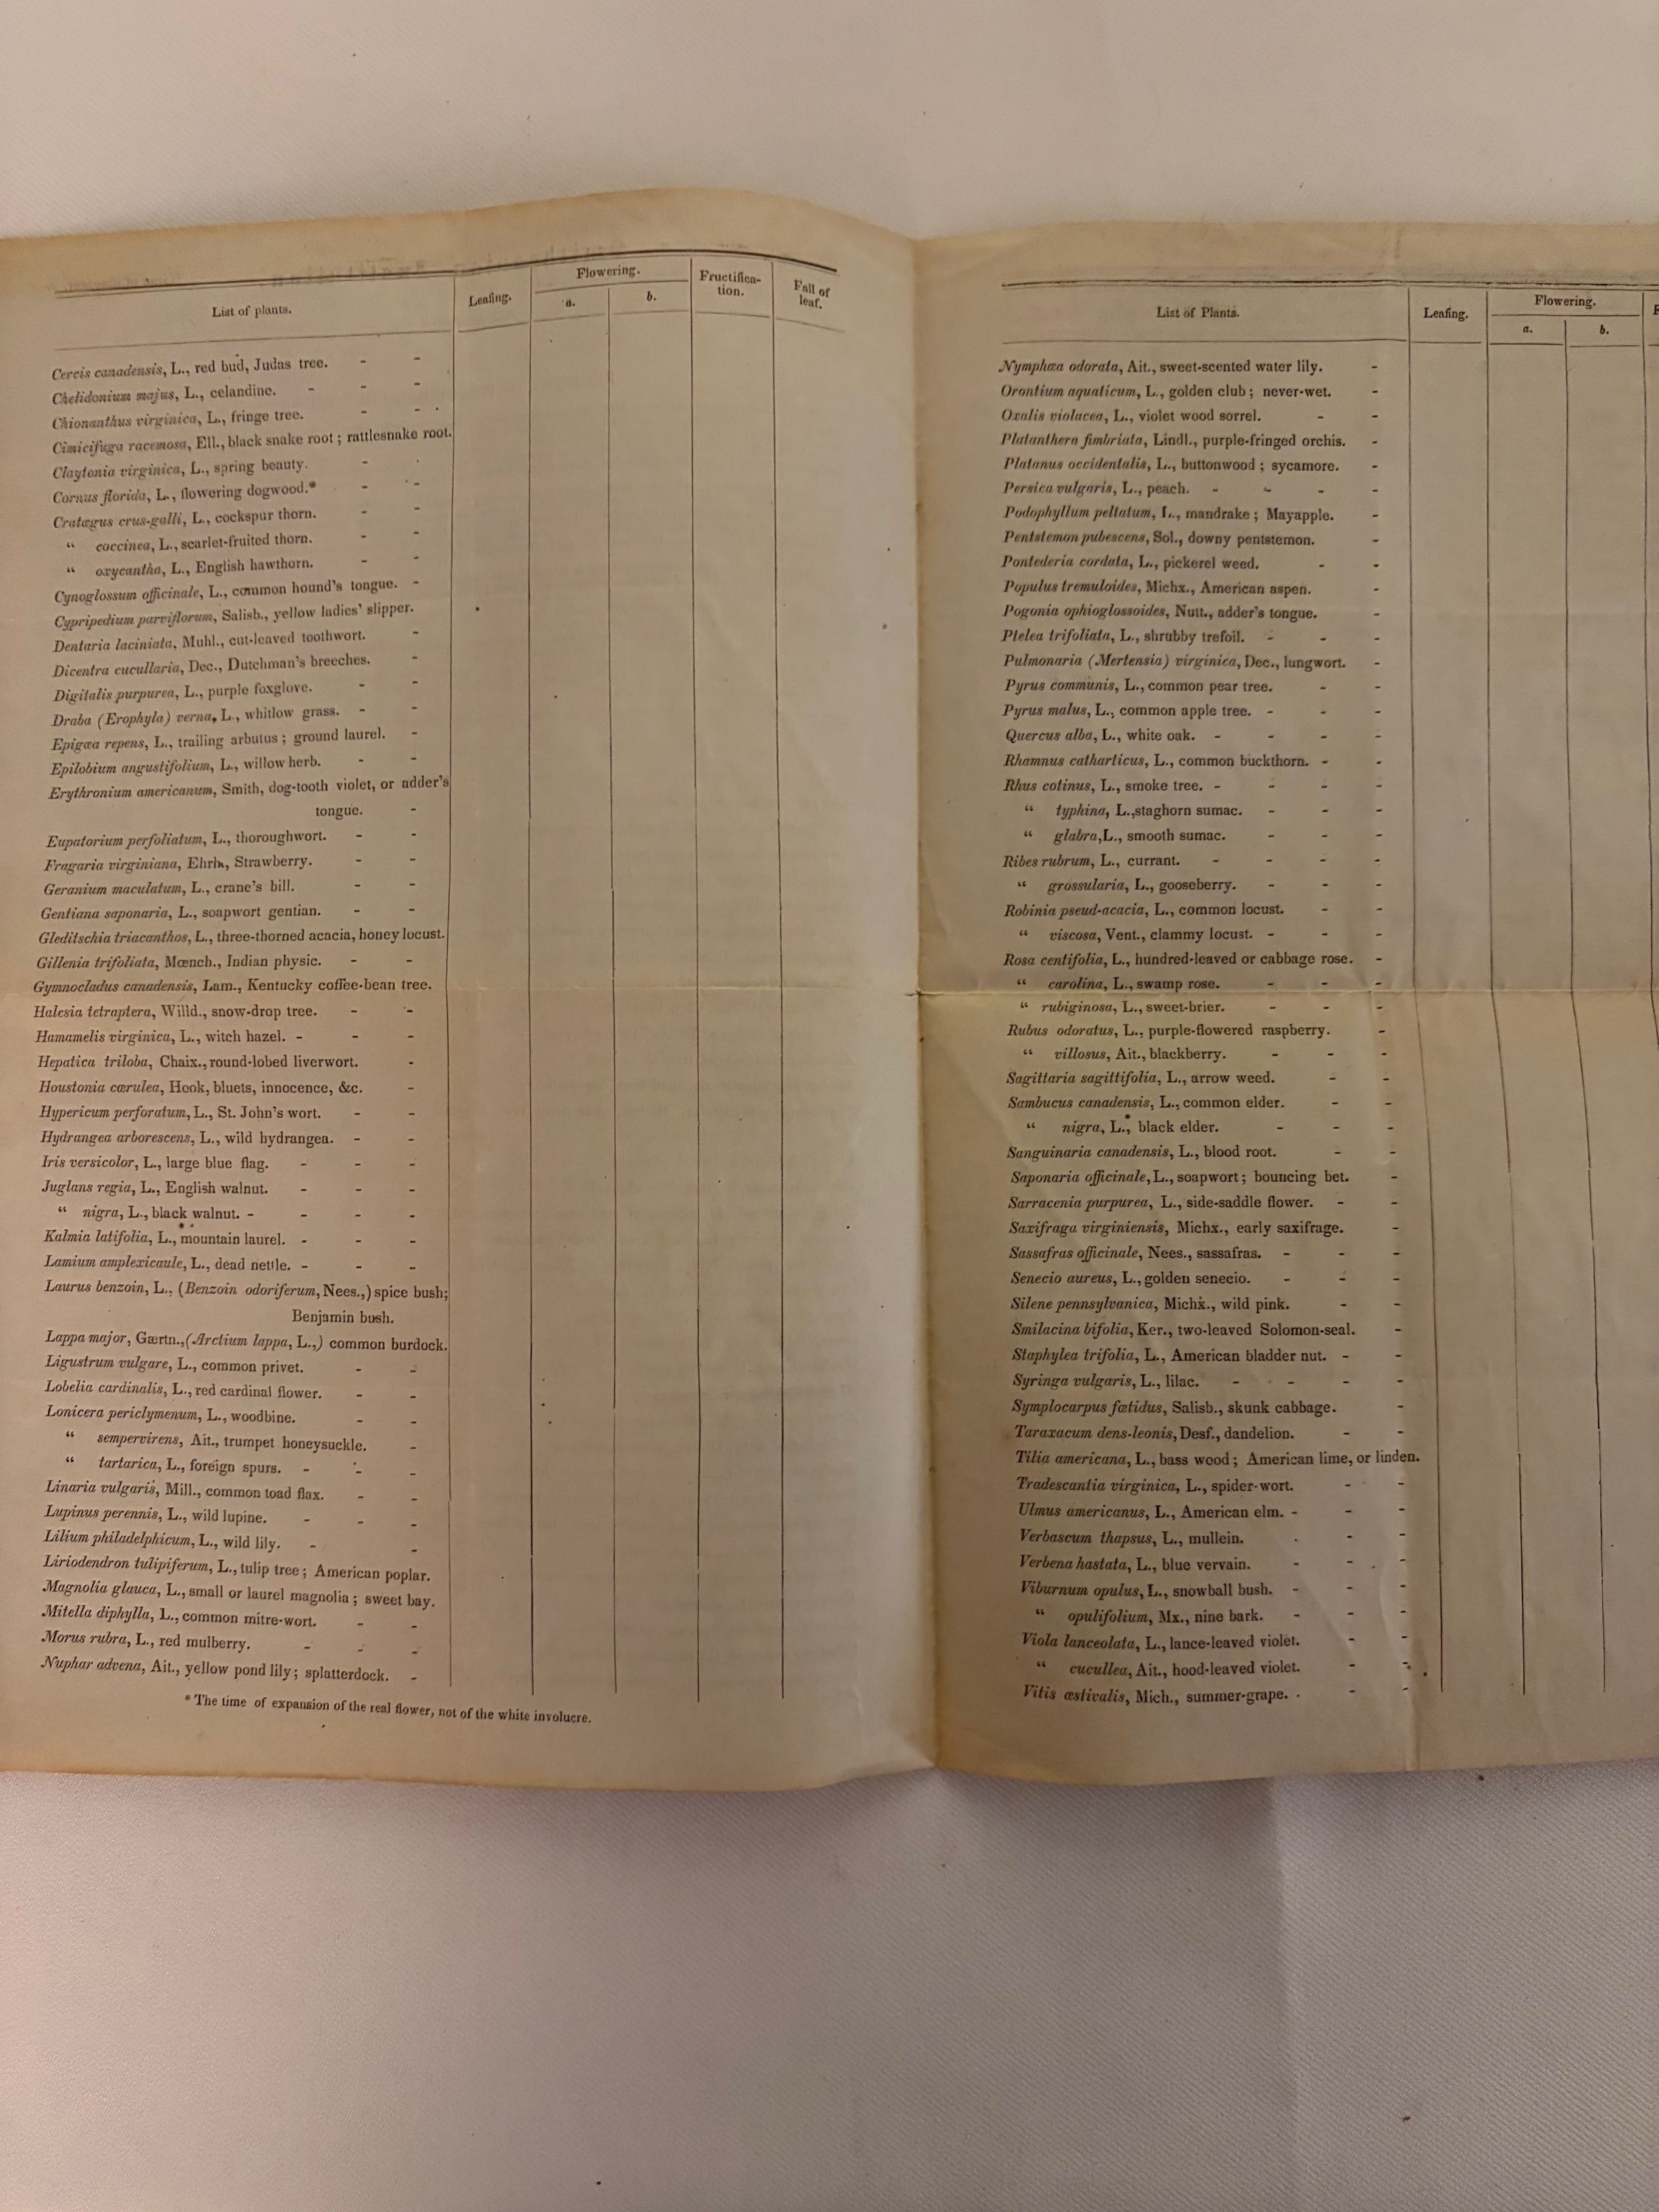 List of plants.
Leafing.
Flowering.
a.
b.
Fructifica-
tion.
Fall of
leaf.
Cercis canadensis, L., red bud, Judas tree. - -
Chelidonium majus, L., celandine. - - -
Chionanthus virginica, L., fringe tree. - -
Cimicifuga racemosa, Ell., black snake root; rattlesnake root.
Claytonia virginica, L., spring beauty. -
Cornus florida, L., flowering dogwood.* - -
Cratægus crus-galli, L., cockspur thorn. - -
“ coccinea, L., scarlet-fruited thorn. - -
“ oxycantha, L., English hawthorn. - -
Cynoglossum officinale, L., common hound's tongue. -
Cypripedium parviflorum, Salisb., yellow ladies' slipper.
Dentaria laciniata, Muhl., cut-leaved toothwort. -
Dicentra cucullaria, Dec., Dutchman's breeches. -
Digitalis purpurea, L., purple foxglove. - -
Draba (Erophyla) verna, L., whitlow grass. - -
Epigæa repens, L., trailing arbutus; ground laurel. -
Epilobium angustifolium, L., willow herb. - -
Erythronium americanum, Smith, dog-tooth violet, or adder's
tongue. -
Eupatorium perfoliatum, L., thoroughwort. - -
Fragaria virginiana, Ehrh, Strawberry. - -
Geranium maculatum, L., crane's bill. - -
Gentiana saponaria, L., soapwort gentian. - -
Gleditschia triacanthos, L., three-thorned acacia, honey locust.
Gillenia trifoliata, Mœnch., Indian physic. - -
Gymnocladus canadensis, Lam., Kentucky coffee-bean tree.
Halesia tetraptera, Willd., snow-drop tree. - -
Hamamelis virginica, L., witch hazel. - - -
Hepatica triloba, Chaix., round-lobed liverwort. -
Houstonia cærulea, Hook, bluets, innocence, &c. -
Hypericum perforatum, L., St. John's wort. - -
Hydrangea arborescens, L., wild hydrangea. - -
Iris versicolor, L., large blue flag. - - -
Juglans regia, L., English walnut. - - -
“ nigra, L., black walnut. - - - -
Kalmia latifolia, L., mountain laurel. - - -
Lamium amplexicaule, L., dead nettle. - - -
Laurus benzoin, L., (Benzoin odoriferum, Nees.,) spice bush;
Benjamin bush.
Lappa major, Gærtn., (Arctium lappa, L.,) common burdock.
Ligustrum vulgare, L., common privet. - -
Lobelia cardinalis, L., red cardinal flower. - -
Lonicera periclymenum, L., woodbine. - -
“ sempervirens, Ait., trumpet honeysuckle. -
“ tartarica, L., foreign spurs. - - -
Linaria vulgaris, Mill., common toad flax. - -
Lupinus perennis, L., wild lupine. - - -
Lilium philadelphicum, L., wild lily. - -
Liriodendron tulipiferum, L., tulip tree; American poplar.
Magnolia glauca, L., small or laurel magnolia; sweet bay.
Mitella diphylla, L., common mitre-wort. - -
Morus rubra, L., red mulberry. - - -
Nuphar advena, Ait., yellow pond lily; splatterdock. -
* The time of expansion of the real flower, not of the white involucre.
List of Plants.
Leafing.
Flowering.
a.
b.
F
Nymphæa odorata, Ait., sweet-scented water lily. -
Orontium aquaticum, L., golden club; never-wet. -
Oxalis violacea, L., violet wood sorrel. - -
Platanthera fimbriata, Lindl., purple-fringed orchis. -
Platanus occidentalis, L., buttonwood; sycamore. -
Persica vulgaris, L., peach. - - - -
Podophyllum peltatum, L., mandrake; Mayapple. -
Pentstemon pubescens, Sol., downy pentstemon. -
Pontederia cordata, L., pickerel weed. - -
Populus tremuloides, Michx., American aspen. -
Pogonia ophioglossoides, Nutt., adder's tongue. -
Ptelea trifoliata, L., shrubby trefoil. - - -
Pulmonaria (Mertensia) virginica, Dec., lungwort. -
Pyrus communis, L., common pear tree. - -
Pyrus malus, L., common apple tree. - - -
Quercus alba, L., white oak. - - - -
Rhamnus catharticus, L., common buckthorn. - -
Rhus cotinus, L., smoke tree. - - - -
“ typhina, L., staghorn sumac. - - -
“ glabra, L., smooth sumac. - - -
Ribes rubrum, L., currant. - - - -
“ grossularia, L., gooseberry. - - -
Robinia pseud-acacia, L., common locust. - -
“ viscosa, Vent., clammy locust. - - -
Rosa centifolia, L., hundred-leaved or cabbage rose. -
“ carolina, L., swamp rose. - - -
“ rubiginosa, L., sweet-brier. - - -
Rubus odoratus, L., purple-flowered raspberry. -
“ villosus, Ait., blackberry. - - -
Sagittaria sagittifolia, L., arrow weed. - -
Sambucus canadensis, L., common elder. - -
“ nigra, L., black elder. - - -
Sanguinaria canadensis, L., blood root. - -
Saponaria officinale, L., soapwort; bouncing bet. -
Sarracenia purpurea, L., side-saddle flower. - -
Saxifraga virginiensis, Michx., early saxifrage. -
Sassafras officinale, Nees., sassafras. - - -
Senecio aureus, L., golden senecio. - - -
Silene pennsylvanica, Michx., wild pink. - -
Smilacina bifolia, Ker., two-leaved Solomon-seal. -
Staphylea trifolia, L., American bladder nut. - -
Syringa vulgaris, L., lilac. - - - -
Symplocarpus fœtidus, Salisb., skunk cabbage. -
Taraxacum dens-leonis, Desf., dandelion. - -
Tilia americana, L., bass wood; American lime, or linden.
Tradescantia virginica, L., spider-wort. - -
Ulmus americanus, L., American elm. - - -
Verbascum thapsus, L., mullein. - - -
Verbena hastata, L., blue vervain. - - -
Viburnum opulus, L., snowball bush. - - -
“ opulifolium, Mx., nine bark. - - -
Viola lanceolata, L., lance-leaved violet. - -
“ cucullea, Ait., hood-leaved violet. - -
Vitis æstivalis, Mich., summer-grape. - - -